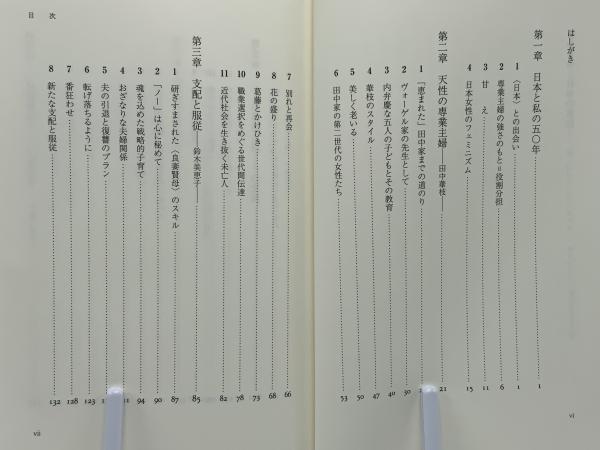 はしがき
第一章 日本と私の五〇年 1
1 〈日本〉との出会い 1
2 専業主婦の強さのもと＝役割分担 6
3 甘え 11
4 日本女性のフェミニズム 15
第二章 天性の専業主婦——田中華枝 21
1 「恵まれた」田中家までの道のり
2 ヴォーゲル家の先生として 30
3 内弁慶な五人の子どもとその教育 40
4 華枝のスタイル 47
5 美しく老いる 50
6 田中家の第二世代の女性たち 53
vi
7 別れと再会 66
8 花の盛り 68
9 葛藤とかけひき 73
10 職業選択をめぐる世代間伝達 78
11 近代社会を生き抜く未亡人 82
第三章 支配と服従——鈴木美恵子—— 85
1 研ぎすまされた〈良妻賢母〉のスキル 87
2 「ノー」は心に秘めて 90
3 魂を込めた戦略的子育て 94
4 おざなりな夫婦関係
5 夫の引退と復讐のプラン
6 転げ落ちるように 123
7 番狂わせ 128
8 新たな支配と服従 132
目次
vii